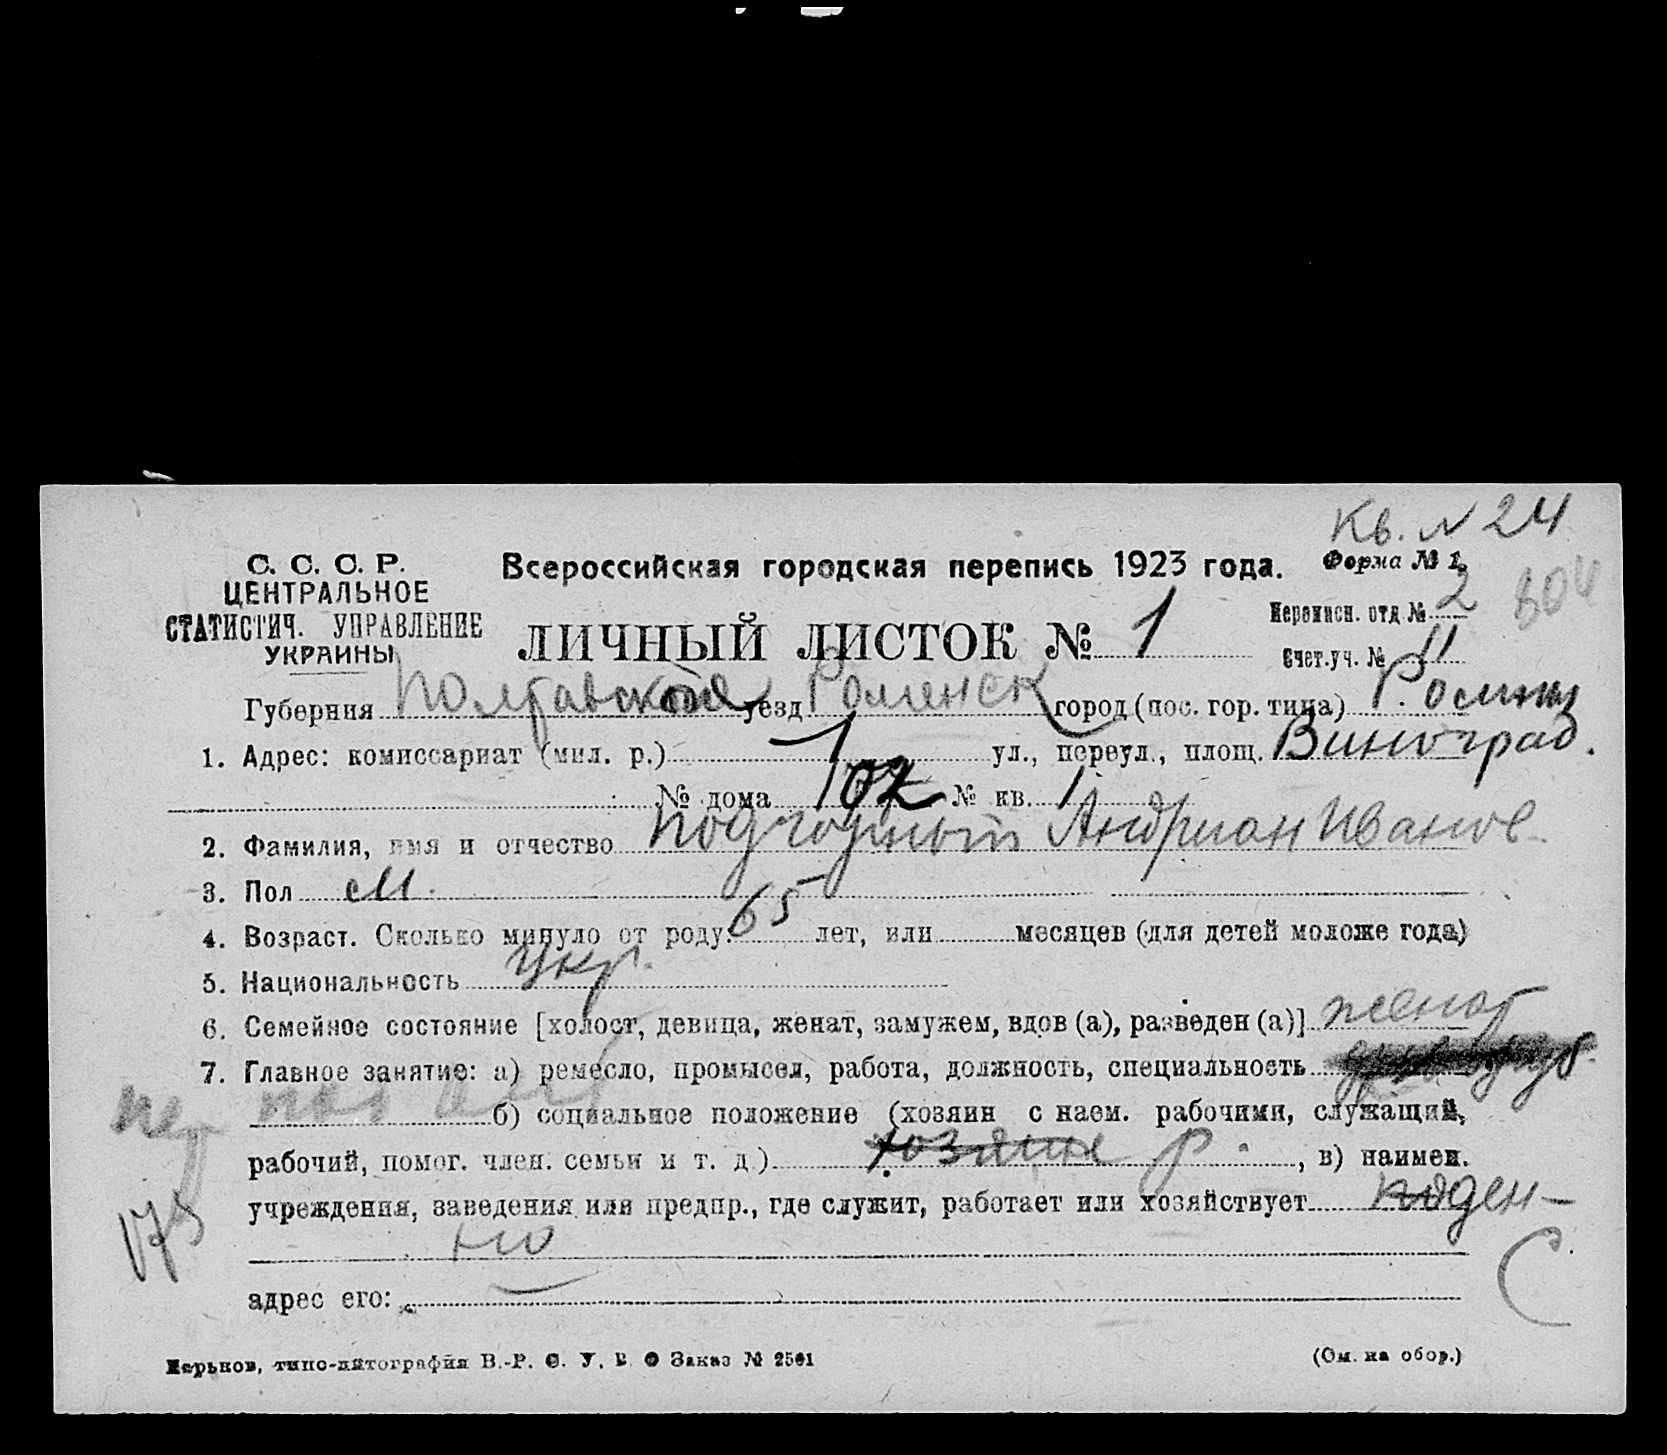 Кв. N 24
С. С. С. Р.
ЦЕНТРАЛЬНОЕ
СТАТИСТИЧ. УПРАВЛЕНИЕ
УКРАИНЫ
Всероссийская городская перепись 1923 года.
Форма № 1.
ЛИЧНЫЙ ЛИСТОК № 1
Переписн. отд № 2
804
Счет.уч. № 11
Губерния Полтавской уезд Роменск город (пос. гор. типа) Ромны
1. Адрес: комиссариат (мил. р.) 1 ул., переул., площ. Виноград.
№ дома 102 № кв. 1
2. Фамилия, имя и отчество Подгодный Андриан Иванов
3. Пол м.
4. Возраст. Сколько минуло от роду. 65 лет, или месяцев (для детей моложе года)
5. Национальность Укр.
6. Семейное состояние [холост, девица, женат, замужем, вдов (а), разведен (а)] женат
7. Главное занятие: а) ремесло, промысел, работа, должность, специальность
б) социальное положение (хозяин с наем. рабочими, служащий,
рабочий, помог. член. семьи и т. д.) хозяин р. , в) наимен.
учреждения, заведения или предпр., где служит, работает или хозяйствует поден-
но
175
С
адрес его:
Харьков, типо-литография В.-Р. С. У. В. О Заказ № 2501
(См. на обор.)